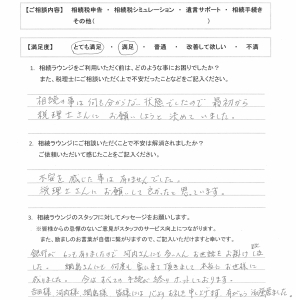 【ご相談内容】 相続税申告 ・ 相続税シミュレーション ・ 遺言サポート ・ 相続手続き
その他( )
【満足度】 とても満足 ・ 満足 ・ 普通 ・ 改善して欲しい ・ 不満
1. 相続ラウンジをご利用いただく前は、どのような事にお困りでしたか?
また、税理士にご相談いただく上で不安だったことなどをご記入ください。
相続の事は何も分からない状態でしたので 最初から
税理士さんに お願いしようと 決めて いました。
2. 相続ラウンジにご相談いただくことで不安は解消されましたか?
ご依頼いただいて感じたことをご記入ください。
不安を感じた事は有りませんでした。
税理士さんに お願いして 良かったと 思っています。
3. 相続ラウンジのスタッフに対してメッセージをお願いします。
※皆様からの忌憚のないご意見がスタッフのサービス向上につながります。
また、励ましのお言葉が自信に繋がりますので、ご記入いただけますと幸いです。
銀行が 有りましたので 河内さんにも お世話をお掛けしま
した。 さんにも 何度も 家に来て頂きまして 本当に お世話に
なりました。 今は
河内様、 様、 皆様には 心より お礼を申し上げます。有がとう御座居ました。